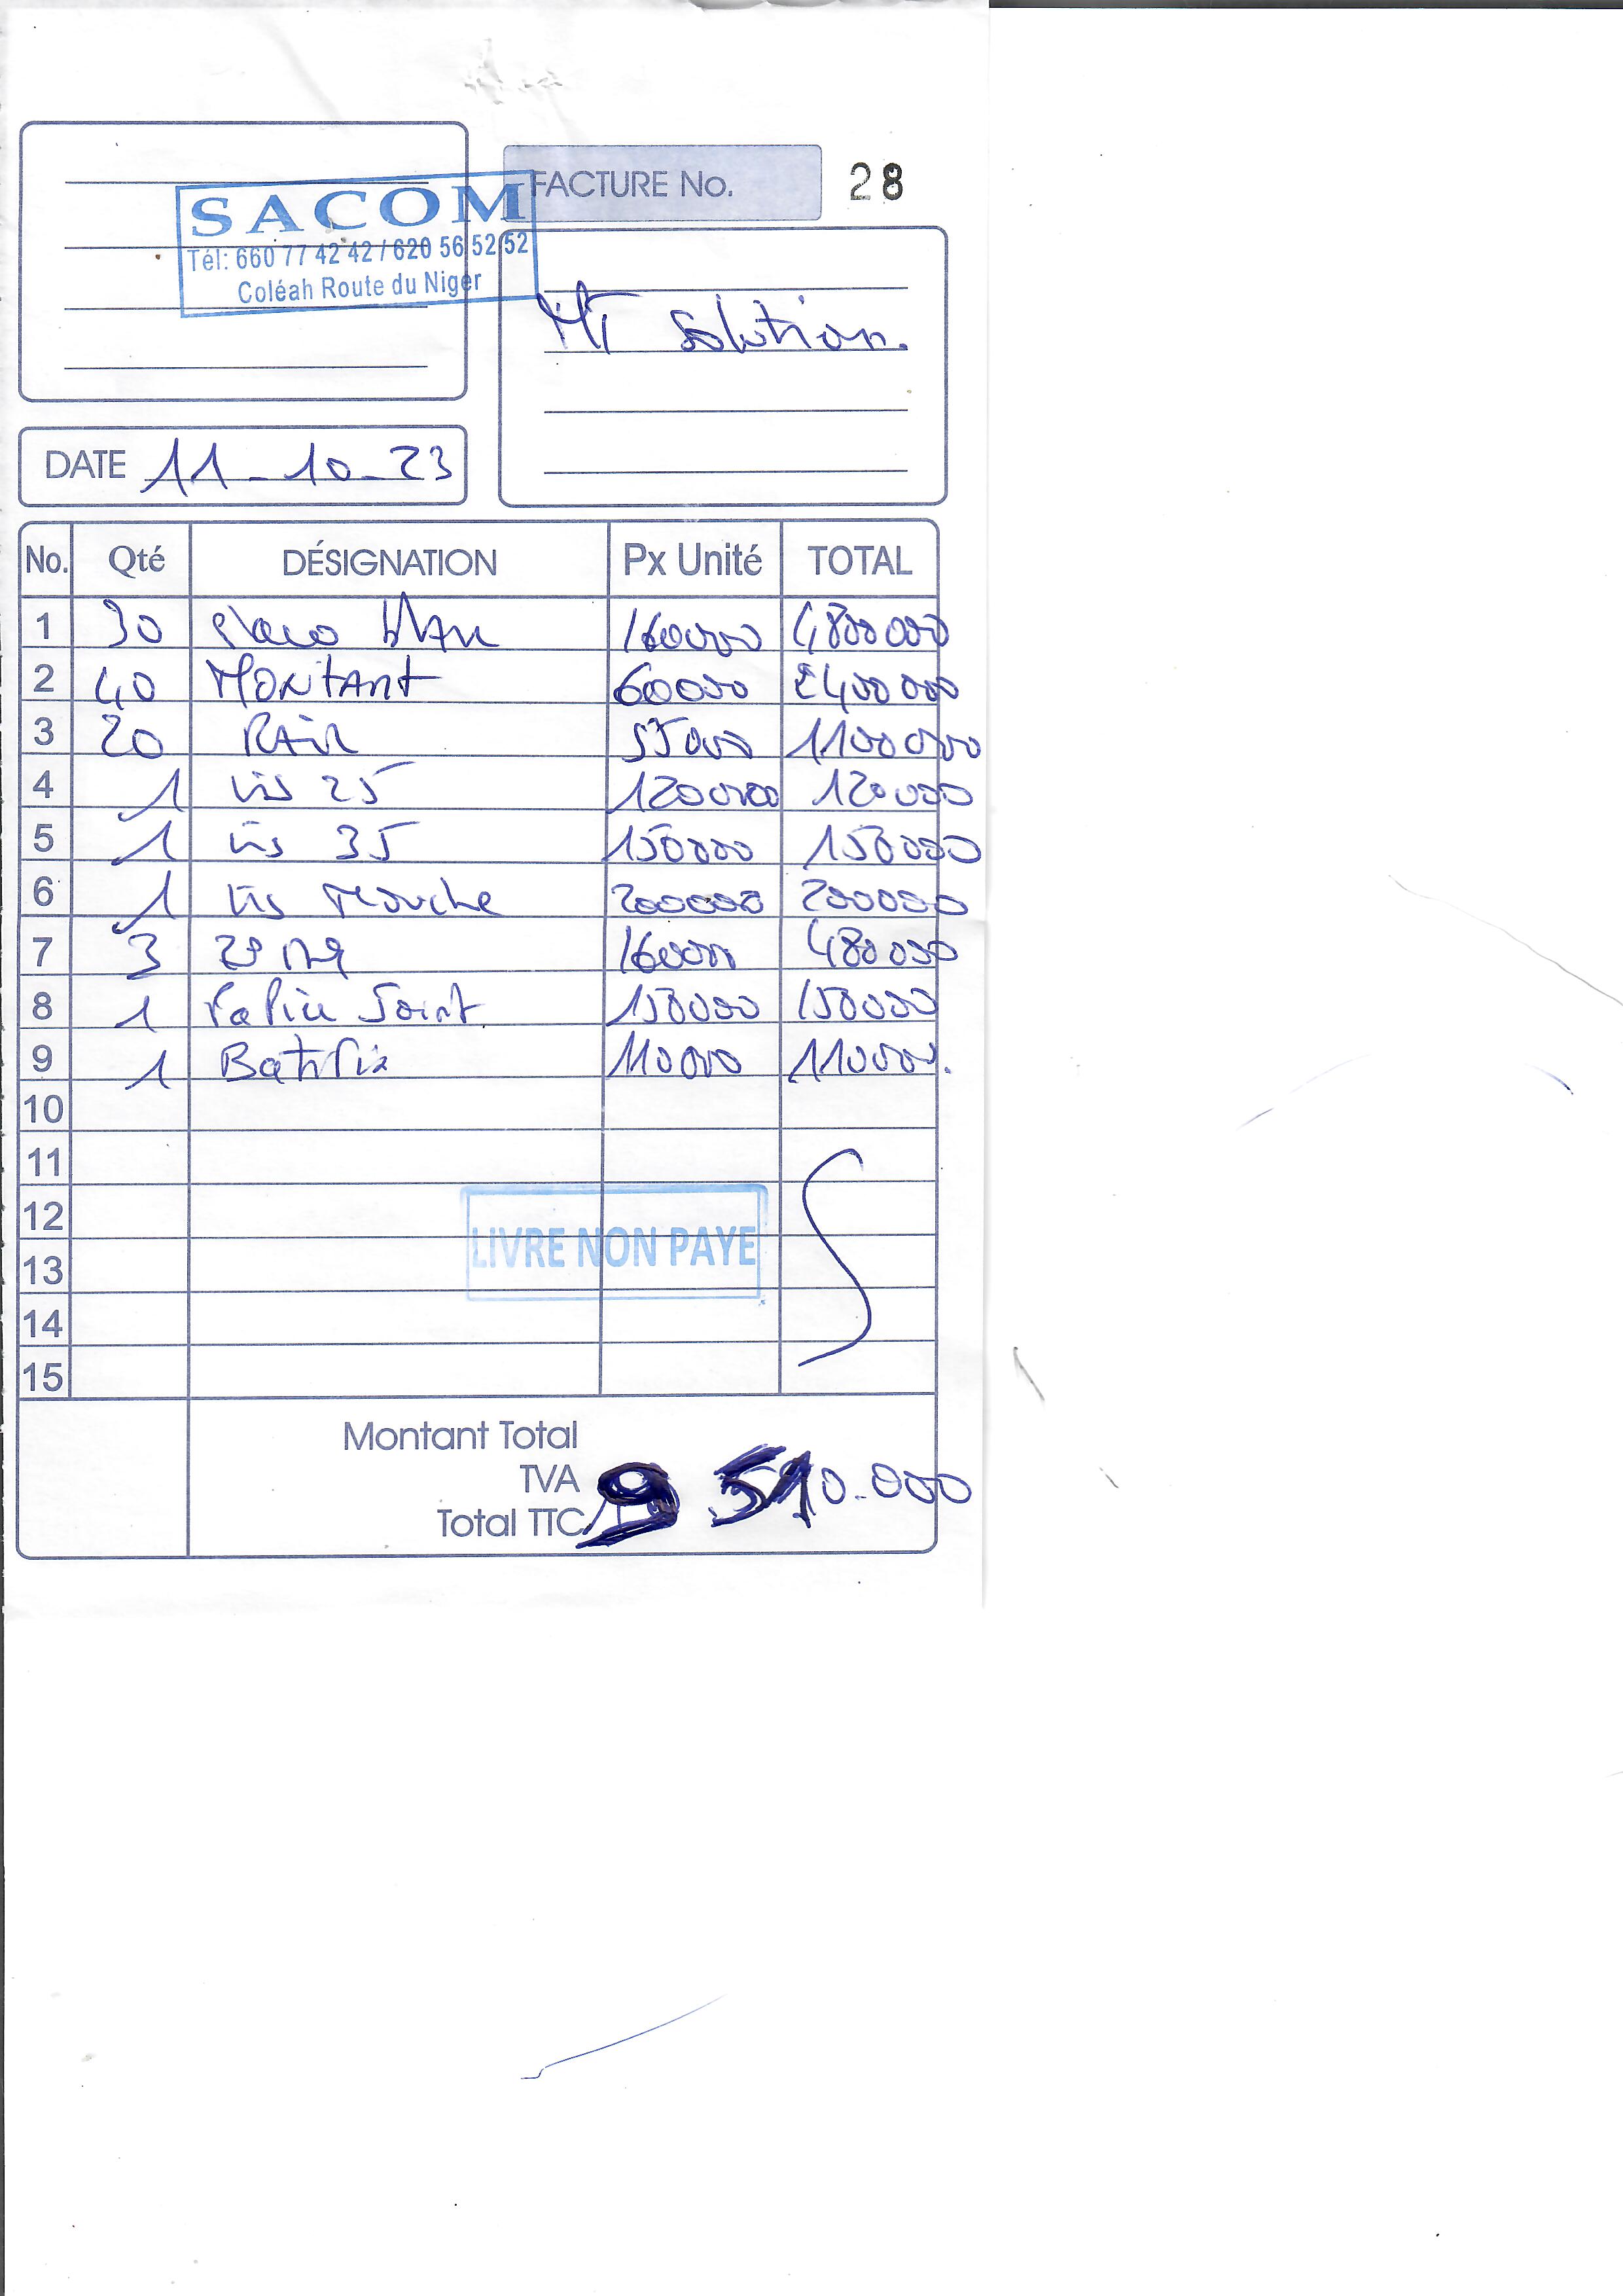 SACOM
Tél: 660 77 42 42 / 620 56 52 52
Coléah Route du Niger
FACTURE No. 28
MT Solution.
DATE 11-10-23
No. Qté DÉSIGNATION Px Unité TOTAL
1 30 placo blanc 160000 4800000
2 40 MONTANT 60000 2400000
3 20 RAIL 55000 1100000
4 1 vis 25 120000 120000
5 1 vis 35 150000 150000
6 1 vis Mouche 200000 200000
7 3 160000 480000
8 1 Papier Joint 150000 150000
9 1 Batifix 110000 110000.
10
11
12
LIVRE NON PAYE
13
14
15
Montant Total
TVA 9 510.000
Total TTC